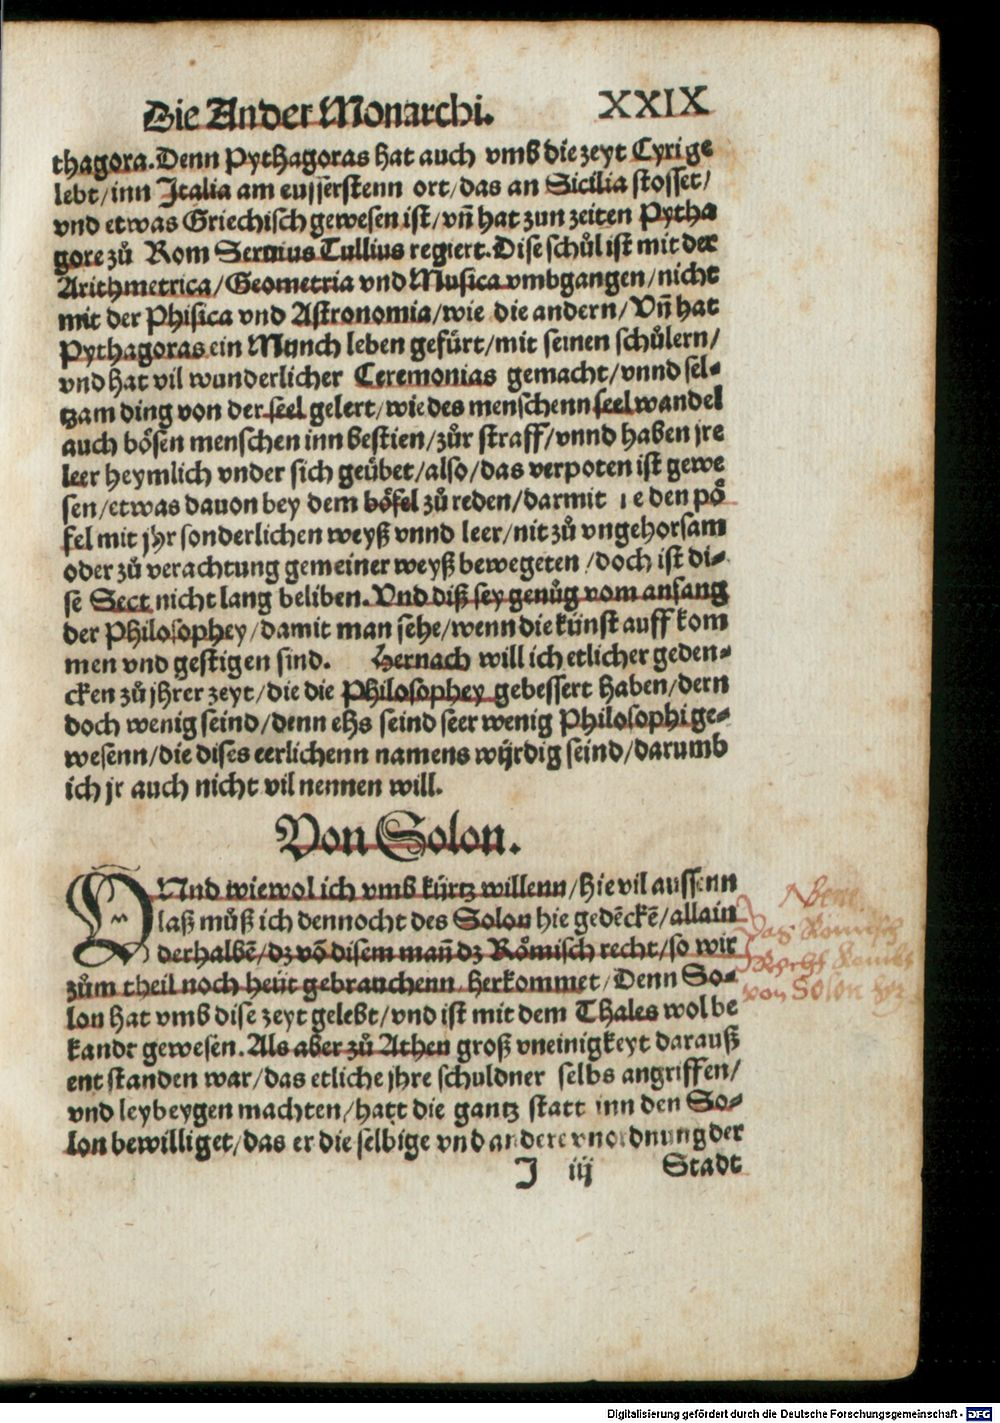 Die Ander Monarchi. XXIX
thagora. Denn Pythagoras hat auch vmb die zeyt Cyri ge
lebt/ inn Italia am eusserstenn ort/ das an Sicilia stosset/
vnd etwas Griechisch gewesen ist/ vn̄ hat zun zeiten Pytha
gore zů Rom Seruius Tullius regiert. Dise schůl ist mit der
Arithmetrica/ Geometria vnd Musica vmbgangen/ nicht
mit der Phisica vnd Astronomia/ wie die andern/ Vn̄ hat
Pythagoras ein Münch leben gefürt/ mit seinen schůlern/
vnd hat vil wunderlicher Ceremonias gemacht/ vnnd sel-
tzam ding von der seel gelert/ wie des menschenn seel wandel
auch bösen menschen inn bestien/ zůr straff/ vnnd haben jre
leer heymlich vnder sich geübet/ also/ das verpoten ist gewe
sen/ etwas dauon bey dem böfel zů reden/ darmit ie den pö
fel mit jhr sonderlichen weyß vnnd leer/ nit zů vngehorsam
oder zů verachtung gemeiner weyß bewegeten/ doch ist di-
se Sect nicht lang beliben. Vnd diß sey genůg vom anfang
der Philosophey/ damit man sehe/ wenn die künst auff kom
men vnd gestigen sind. Hernach will ich etlicher geden-
cken zů jhrer zeyt/ die die Philosophey gebessert haben/ dern
doch wenig seind/ denn ehs seind seer wenig Philosophi ge-
wesenn/ die dises eerlichenn namens wijrdig seind/ darumb
ich jr auch nicht vil nennen will.
Von Solon.
VNnd wiewol ich vmb kürtz willenn/ hie vil aussenn
laß můß ich dennocht des Solon hie gedēckē/ allain
derhalbē/ dz vō disem man̄ dz Römisch recht/ so wir
zům theil noch heüt gebrauchenn herkommet/ Denn So-
lon hat vmb dise zeyt gelebt/ vnd ist mit dem Thales wol be
kandt gewesen. Als aber zů Athen groß vneinigkeyt darauß
entstanden war/ das etliche jhre schuldner selbs angriffen/
vnd leybeygen machten/ hatt die gantz statt inn den So-
lon bewilliget/ das er die selbige vnd andere vnordnung der
J iij Stadt
Nbene
Das Römisch
Recht kombt
von Solon her
Digitalisierung gefördert durch die Deutsche Forschungsgemeinschaft - DFG